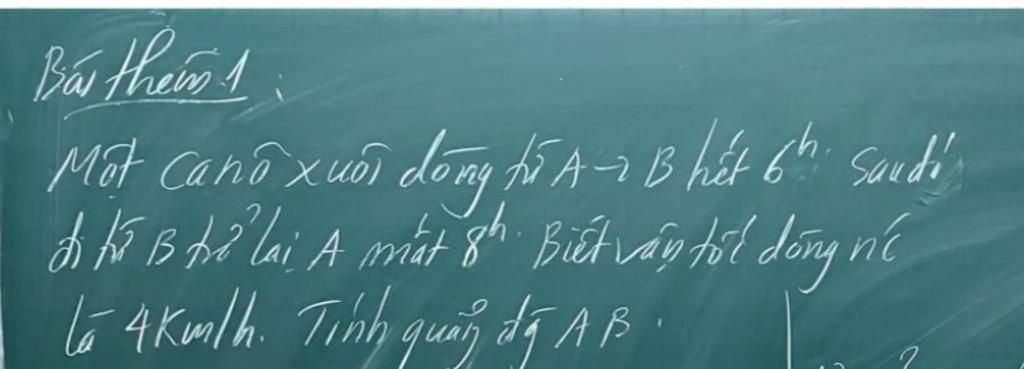 Bài thêm 1:
Một canô xuôi dòng từ A → B hết 6h. Sau đó
đi từ B trở lại A mất 8h. Biết vận tốc dòng nc
là 4km/h. Tính quãng đg AB.